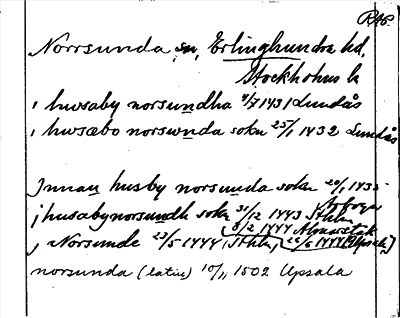 RAP.
Norrsunda sn, Erlinghundra hd,
Stockholms l.
i husaby norsundha 4/7 1431 Lundås
i husæbo norswnda sokn 25/1 1432 Lundås
Innan husby norsunda sokn 20/1 1435
i husaby norsundh sokn 31/12 1443 Sthlm,
8/2 1444 Almarstäk
i Norsunde 23/5 1444, Sthlm, 26/5 1444 (Upsala)
norsunda (latin) 10/11 1502 Upsala